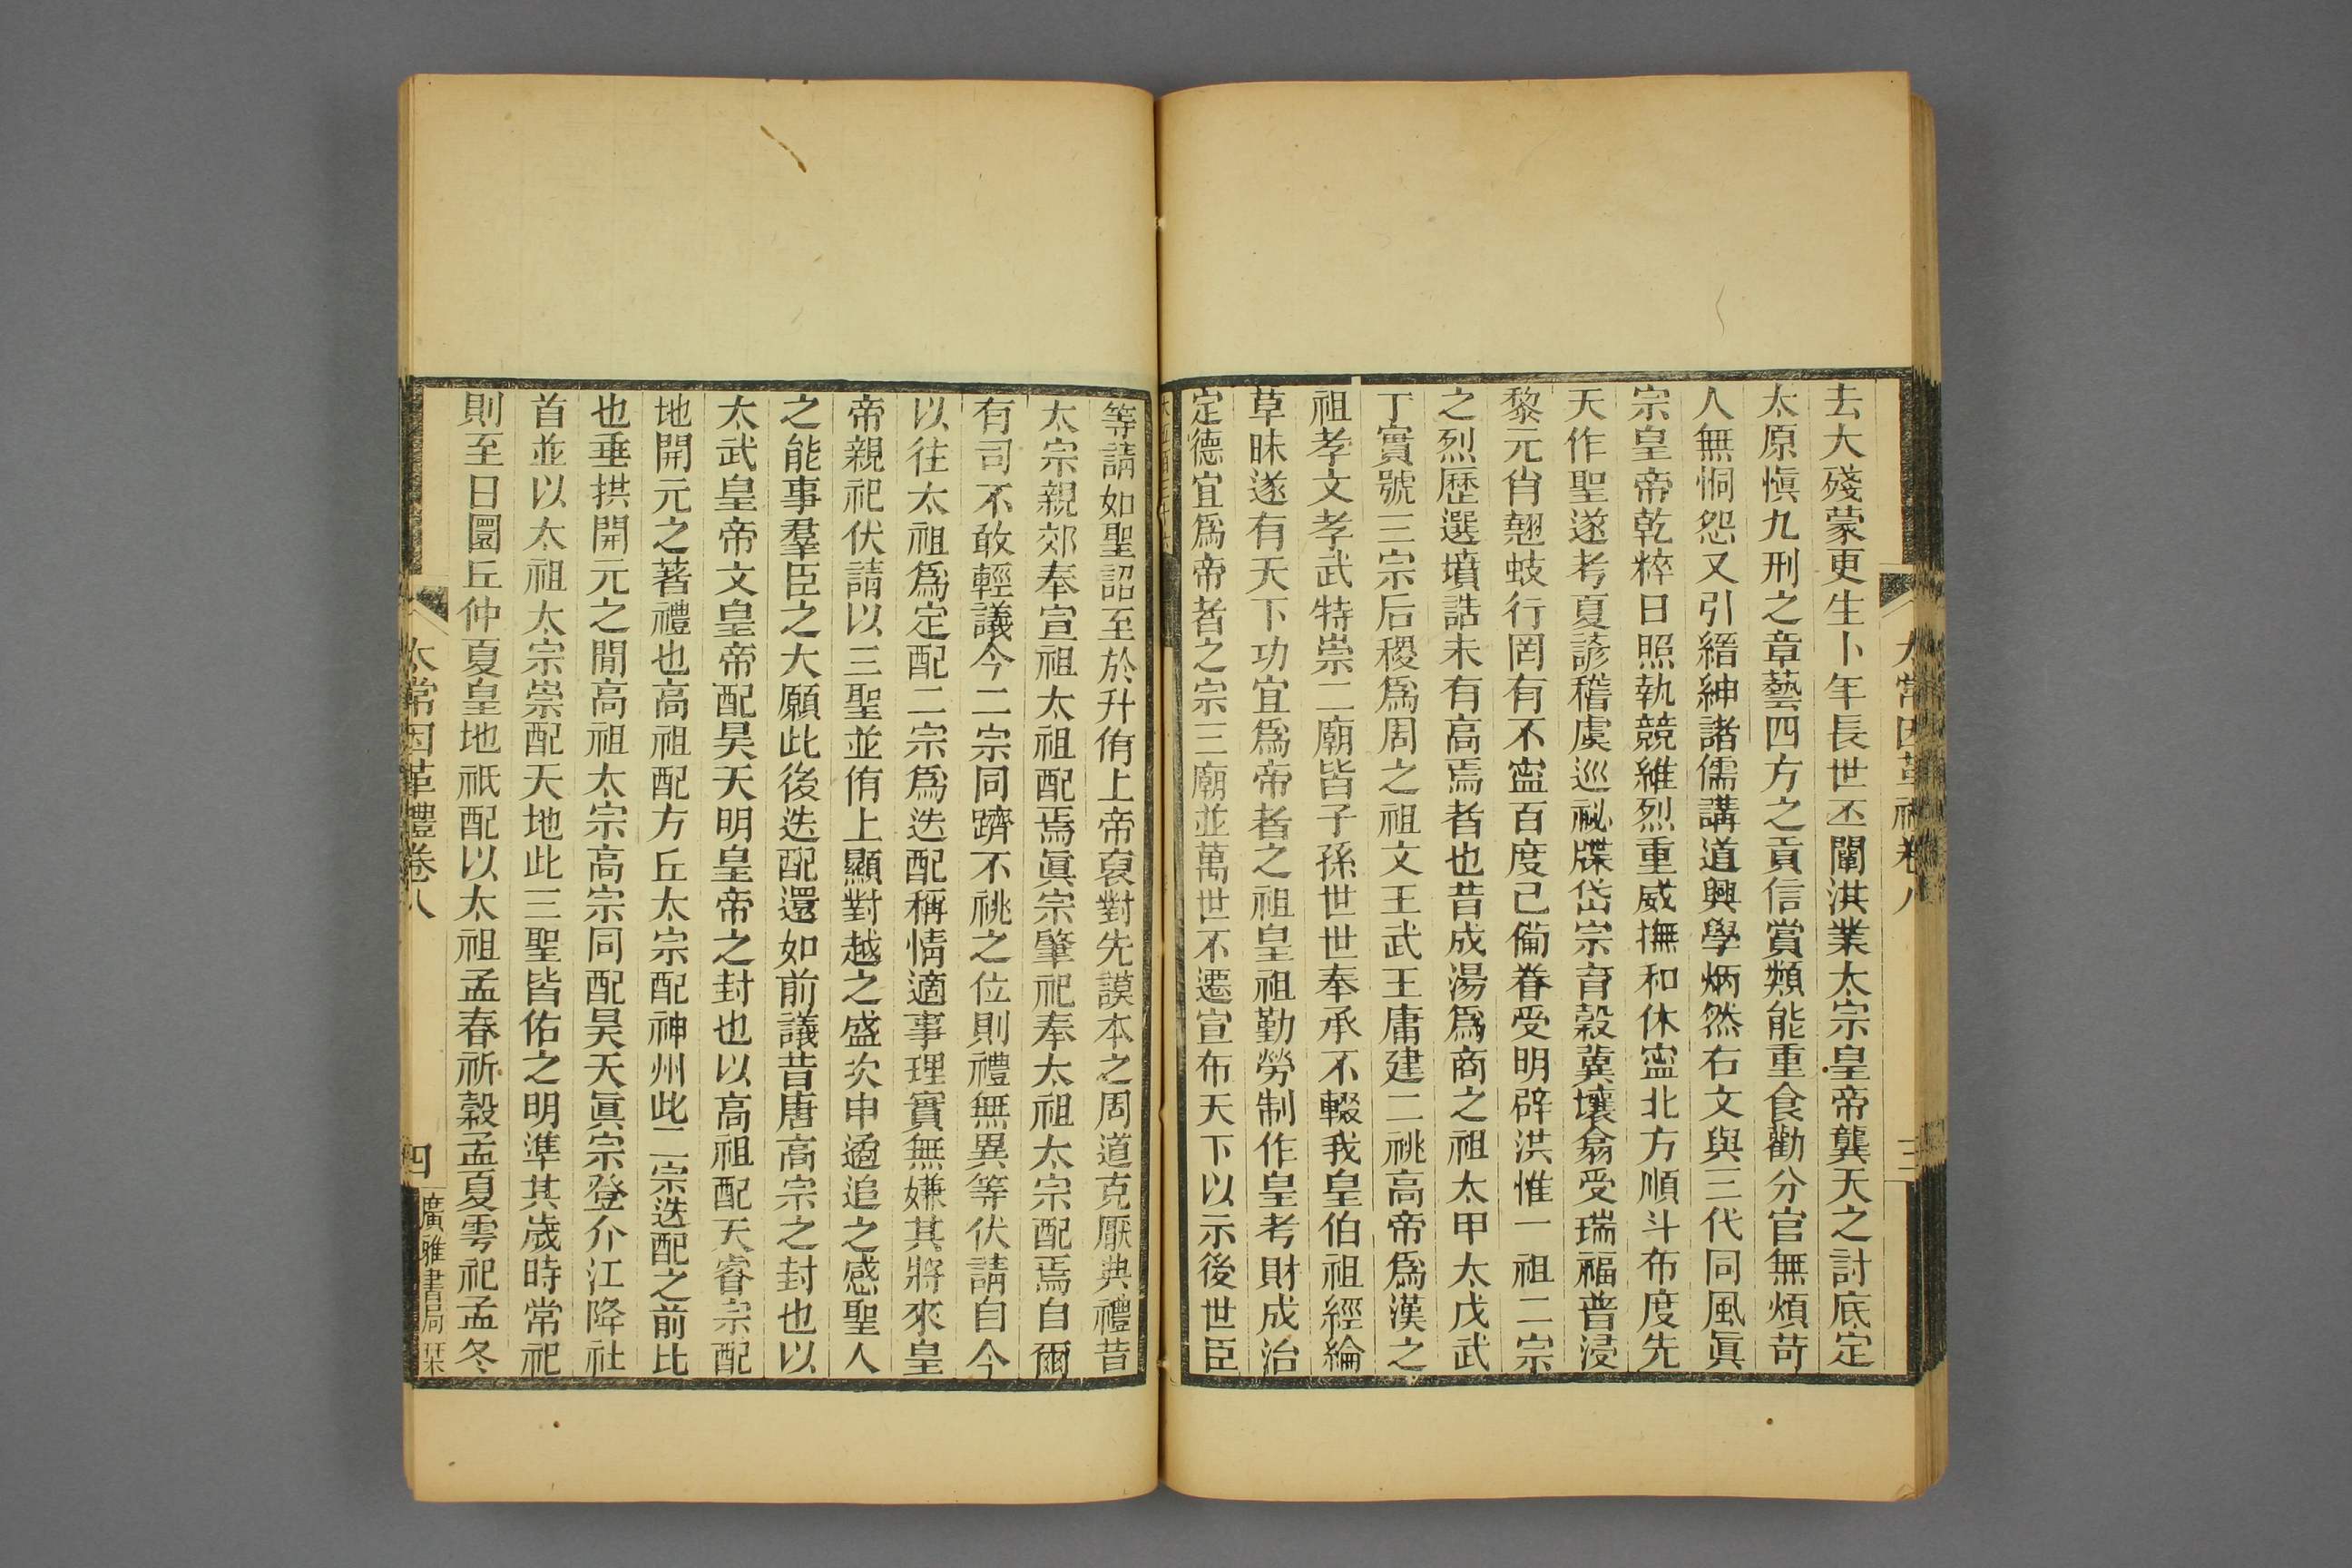 太常因革禮卷八
三
去大殘蒙更生卜年長世丕闡淇業太宗皇帝龔天之討底定
太原愼九刑之章藝四方之貢信賞類能重食勸分官無煩苛
人無恫怨又引縉紳諸儒講道興學炳然右文與三代同風眞
宗皇帝乾粹日照執競維烈重威撫和休寍北方順斗布度先
天作聖遂考夏諺稽虞巡祕牒岱宗育穀冀壤翕受瑞福普浸
黎元肖翹蚑行罔有不寍百度已僃眷受明辟洪惟一祖二宗
之烈歷選墳誥未有高焉者也昔成湯爲商之祖太甲太戊武
丁實號三宗后稷爲周之祖文王武王庸建二祧高帝爲漢之
祖孝文孝武特崇二廟皆子孫世世奉承不輟我皇伯祖經綸
草昧遂有天下功宜爲帝者之祖皇祖勤勞制作皇考財成治
定德宜爲帝者之宗三廟並萬世不遷宣布天下以示後世臣
等請如聖詔至於升侑上帝裒對先謨本之周道克厭典禮昔
太宗親郊奉宣祖太祖配焉眞宗肇祀奉太祖太宗配焉自爾
有司不敢輕議今二宗同躋不祧之位則禮無異等伏請自今
以往太祖爲定配二宗爲迭配稱情適事理實無嫌其將來皇
帝親祀伏請以三聖並侑上顯對越之盛次申遹追之感聖人
之能事羣臣之大願此後迭配還如前議昔唐高宗之封也以
太武皇帝文皇帝配昊天明皇帝之封也以高祖配天睿宗配
地開元之著禮也高祖配方丘太宗配神州此二宗迭配之前比
也垂拱開元之閒高祖太宗高宗同配昊天眞宗登介江降社
首並以太祖太宗崇配天地此三聖皆佑之明準其歲時常祀
則至日圜丘仲夏皇地祇配以太祖孟春祈穀孟夏雩祀孟冬
太常因革禮卷八
四
廣雅書局栞